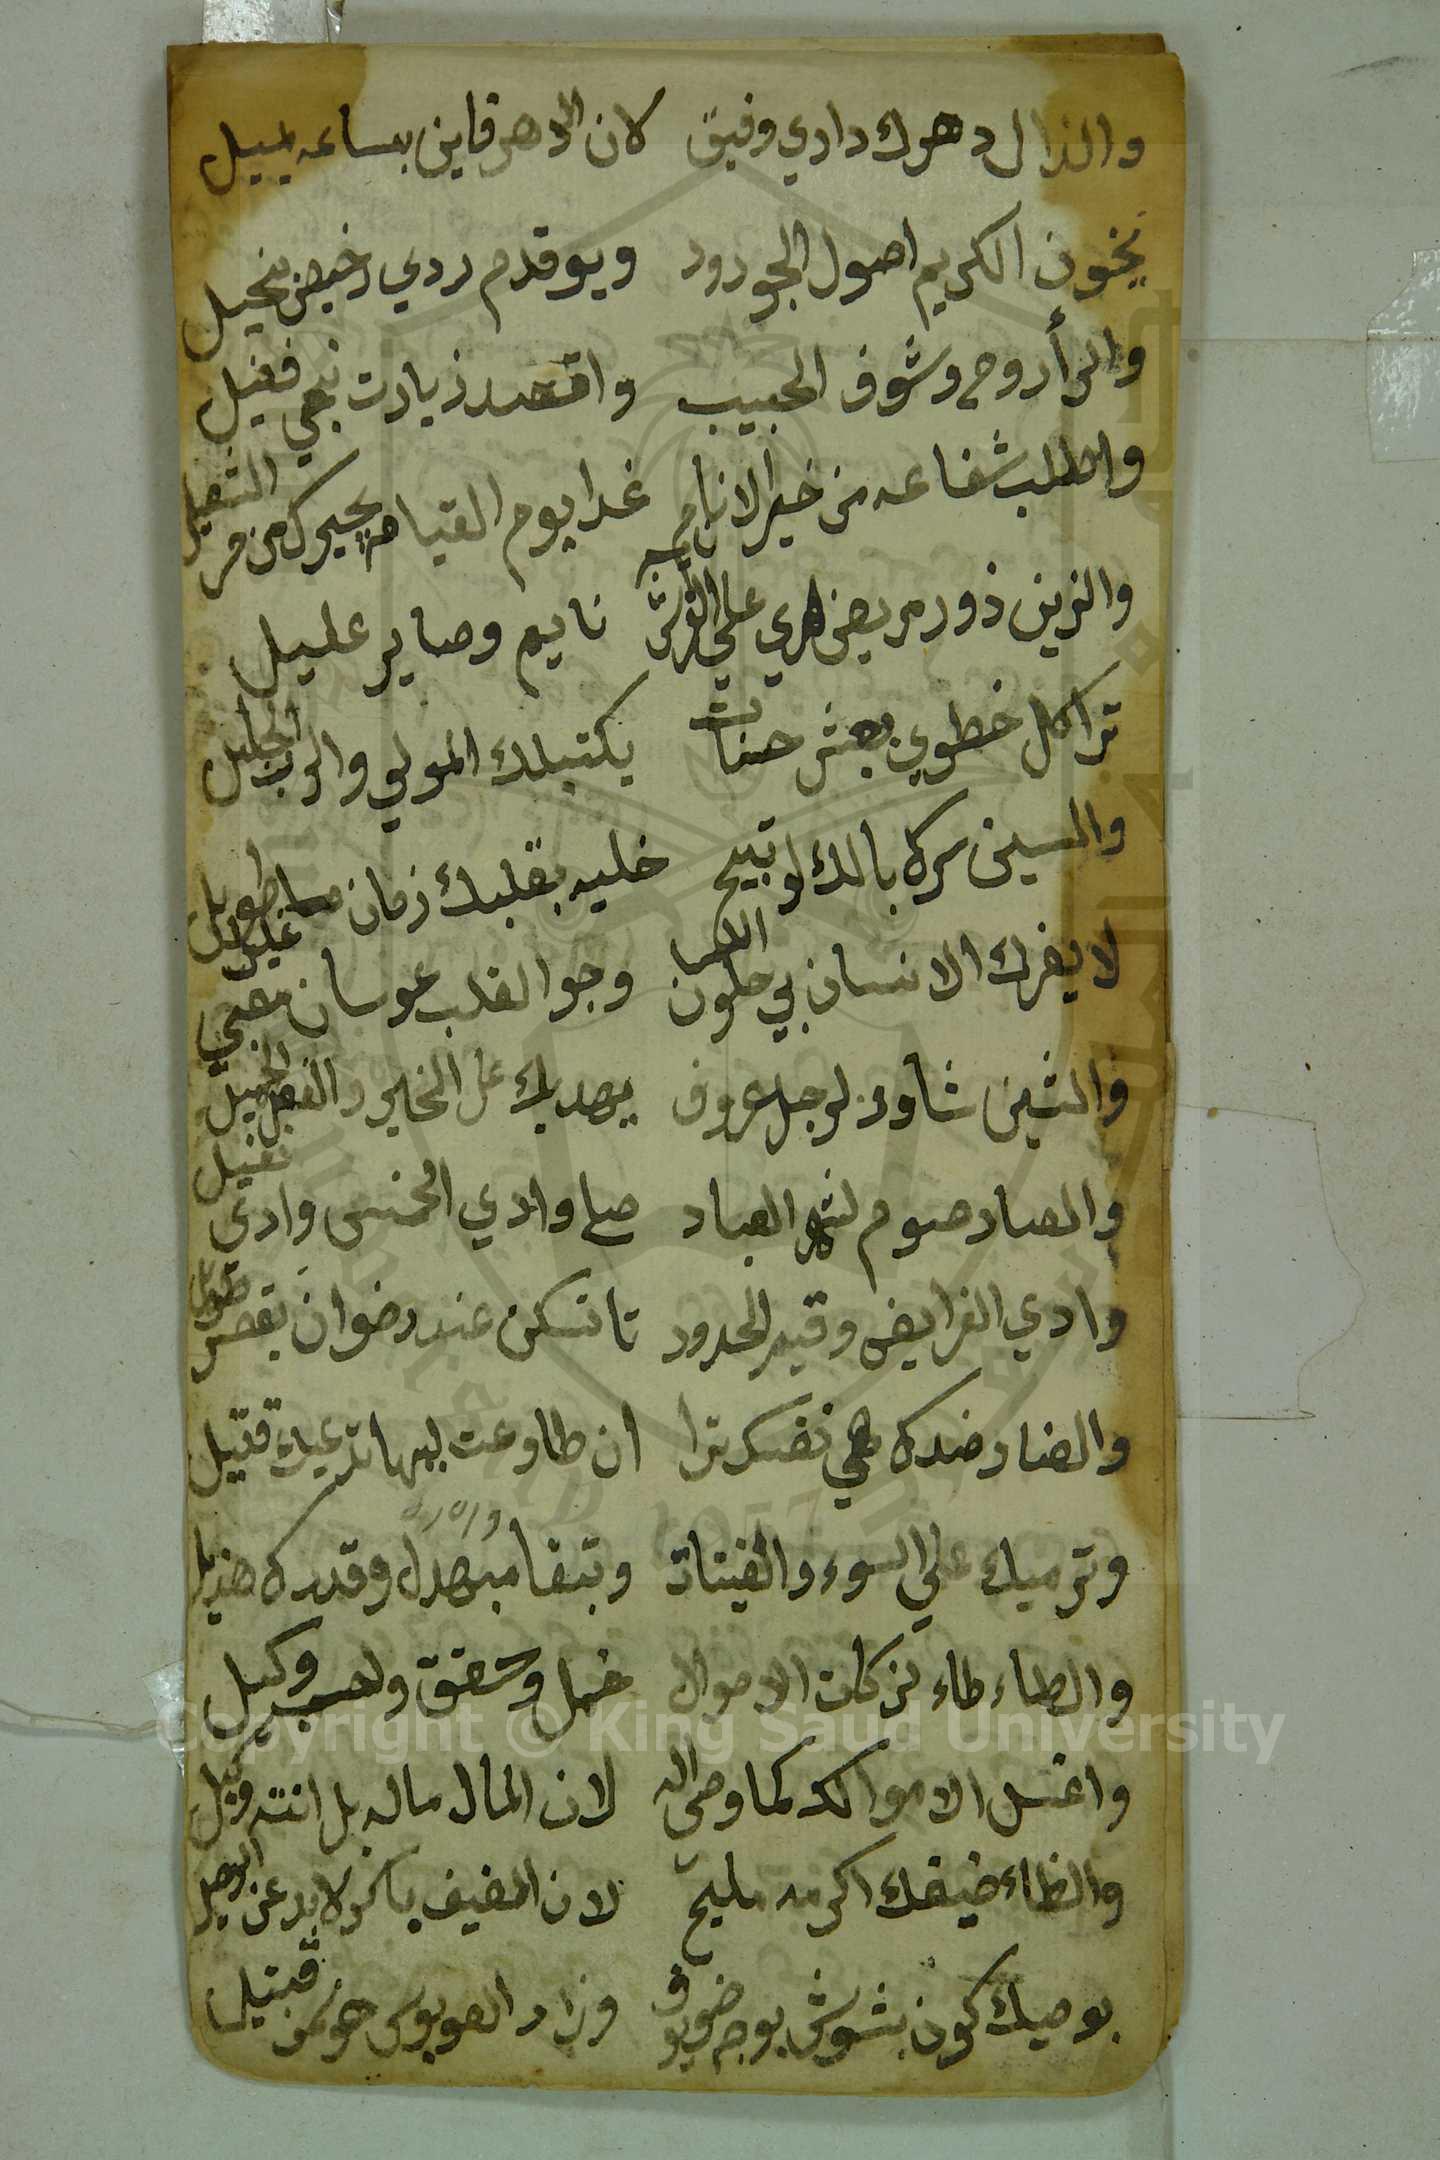 والذال دهرك دادي وفيق لان الدهر قاين بساعه يميل
يخون الكريم اصول الجودود ويوقدم ردي رخيص بخيل
والرأ روح وشوف الحبيب واقصد زيارت نبي فضيل
واطلب شفاعه من خير الانام غدا يوم القيامه يجيرك من مر الثقيل
والزين زور مريض نايم وصاير عليل
ترا كل خطوي بعشر حسنات يكتبلك المولي والرب الجليل
والسين سرك بالك لو تبيح خليه بقلبك زمان طويل
لا يغرك الانسان بي حلون اللسان وجو القلب عوسان معبي غليل
والشين شاور لرجل عروف يهديك على الخير والفعل الجميل
والصاد صوم لشهر العباد صلي وادي الخمس وادي نفيل
وادي الفرايض وقيم الحدود تا تسكن عند رضوان بقصر طويل
والضاد ضدك هي نفسك ترا ان طاوعت ليها تدعيك قتيل
وترميك علي السوء والفينات وتبقا مبهدل وقدرك هذيل
والطاء طاء لزكات الاموال خمل وشقق ولحب وكيل
واغسل الاموالك كما وصى اله لان المال ماله بل انته وكيل
والظاء ضيفك اكرمه مليح لان المضيف باكر لا بد عن الرحيل
بوصيك كون بشوش بوجه ضيوف وزاد العوبوس هو
Copyright © King Saud University